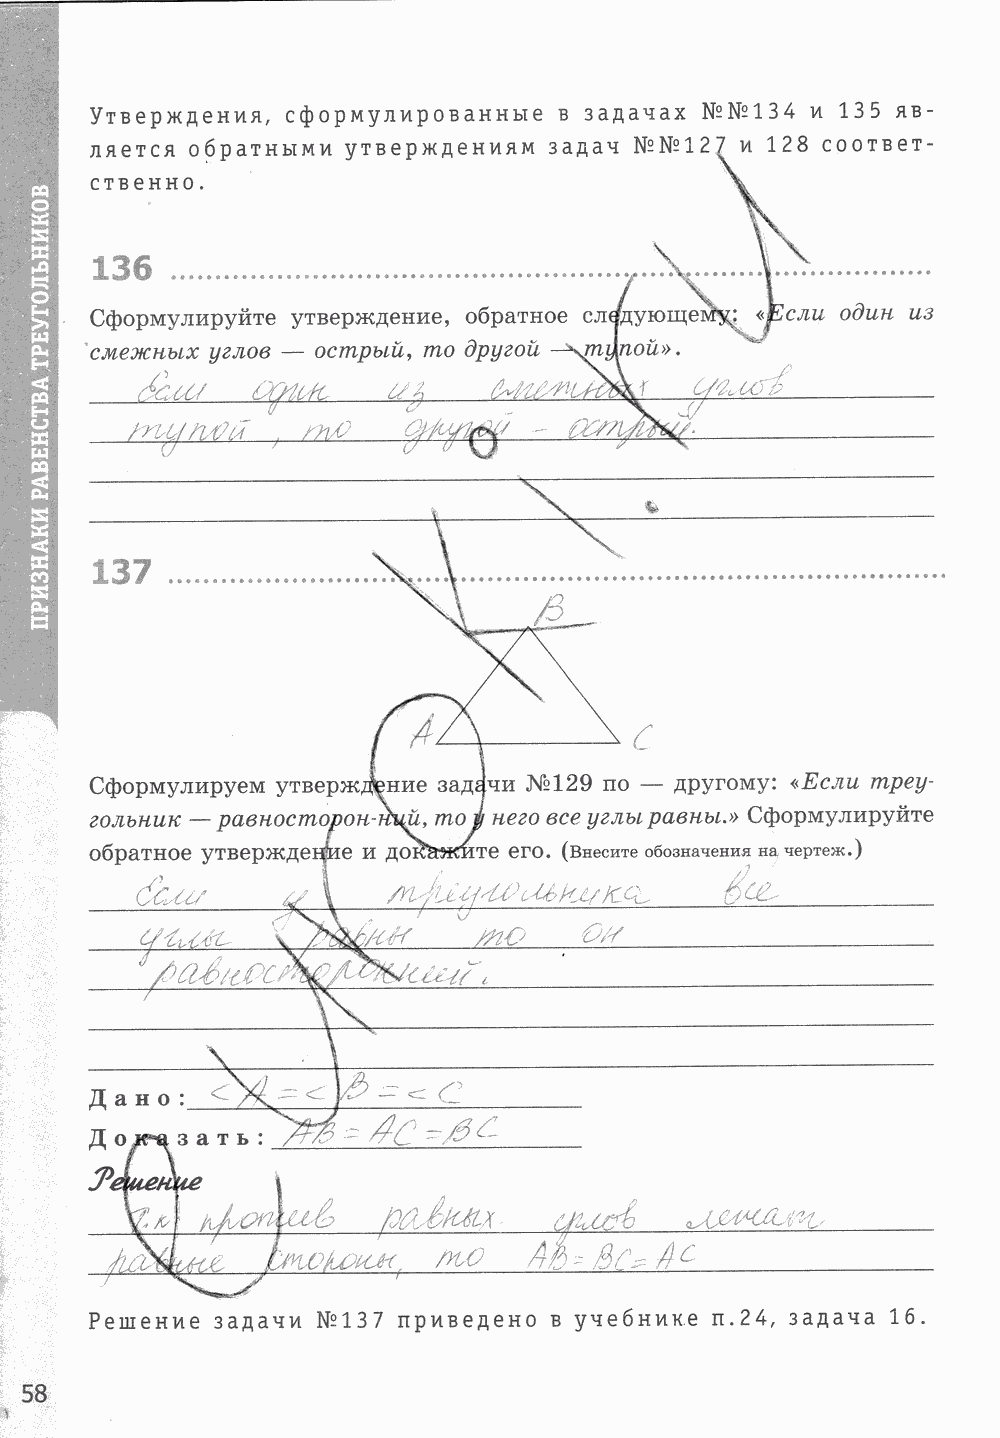 ПРИЗНАКИ РАВЕНСТВА ТРЕУГОЛЬНИКОВ
Утверждения, сформулированные в задачах №№134 и 135 яв-
ляется обратными утверждениям задач №№127 и 128 соответ-
ственно.
136
Сформулируйте утверждение, обратное следующему: «Если один из
смежных углов — острый, то другой — тупой».
Если один из смежных углов
тупой, то другой - острый.
137
B
A
C
Сформулируем утверждение задачи №129 по — другому: «Если треу-
гольник — равносторон-ний, то у него все углы равны.» Сформулируйте
обратное утверждение и докажите его. (Внесите обозначения на чертеж.)
Если у треугольника все
углы равны то он
равносторонний.
Дано: <A=<B=<C
Доказать: AB=AC=BC
Решение
Т.к против равных углов лежат
равные стороны, то AB=BC=AC
Решение задачи №137 приведено в учебнике п.24, задача 16.
58